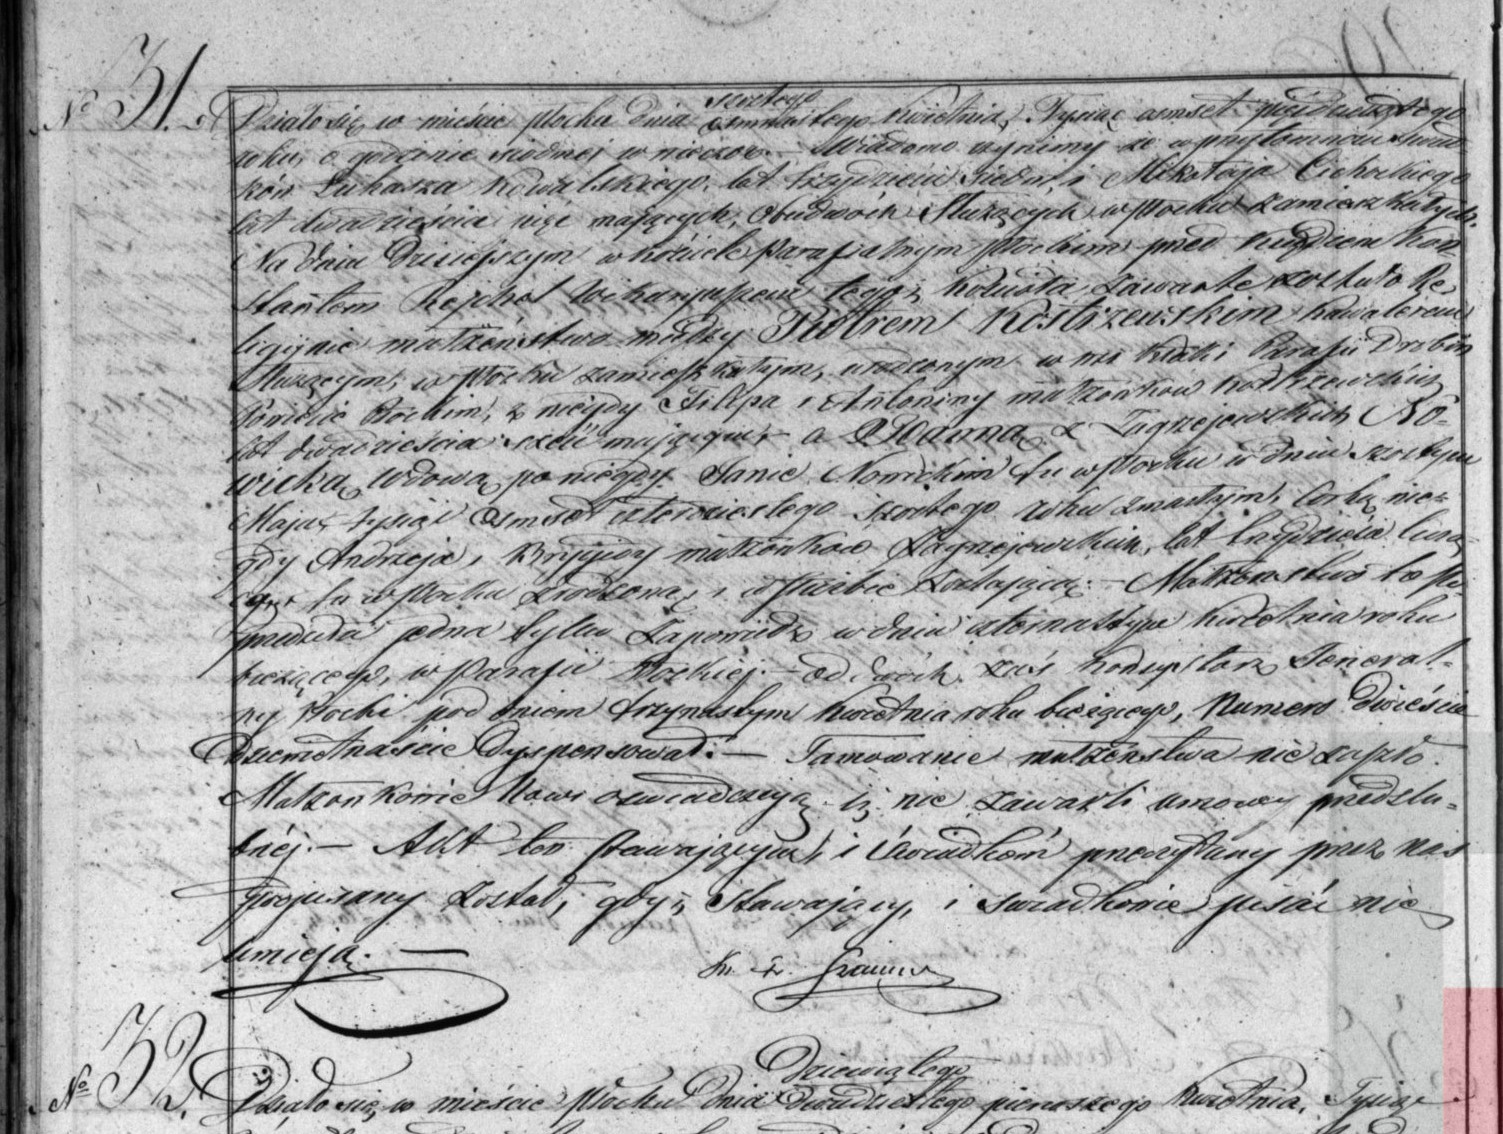 No 31.
Działo się w mieście Płocku dnia szóstego
osmnastego Kwietnia, Tysiąc osmset pięćdziesiątego
roku, o godzinie siodmej w wieczor. — Wiadomo czynimy że w przytomności Świad-
ków Łukasza Kowalskiego, lat trzydzieści siedm, i Mikołaja Cichockiego
lat dwadzieścia pięć mających, obudwóch Służących w Płocku zamieszkałych,
Na dniu dzisiejszym w kościele Parafialnym Płockim przed Księdzem Kon-
stantem Rejchel Wikaryuszem tegoż Kościoła, zawarte zostało Re-
ligijnie małżeństwo między Piotrem Kostrzewskim kawalerem
Służącym, w Płocku zamieszkałym, urodzonym w wsi Parafii Drobin
Powiecie Płockim, z niegdy Filipa i Antoniny małżonków Kostrzewskich
lat dwadzieścia sześć mającym, a Joanną z Zagrzejewskich No-
wicką, Wdową po niegdy Janie Nowickim tu w Płocku w dniu szóstym
Maja, tysiąc osmset czterdziestego szóstego roku zmarłym, Córką nie-
gdy Andrzeja i Brygidy małżonków Zagrzejewskich, lat trzydzieści liczą-
cą, tu w Płocku zrodzoną, i w służbie zostającą. — Małżeństwo to po-
przedziła jedna tylko Zapowiedź w dniu czternastym Kwietnia roku
bieżącego, w Parafii Płockiej. — od dwóch zaś Konsystorz Jeneral-
ny Płocki pod dniem trzynastym Kwietnia roku bieżącego, Numero Dwieście
Dziewiętnaście Dyspensował. — Tamowanie małżeństwa nie zaszło.
Małżonkowie Nowi oświadczają iż nie zawarli umowy przedślu-
bnéj. — Akt ten stawającym i Świadkóm przeczytany przez nas
podpisany został, gdyż Stawający, i świadkowie pisać nie
umieją. —
No 32.
Dziewiątego
Działo się w mieście Płocku Dnia Dwudziestego pierwszego Kwietnia, Tysiąc